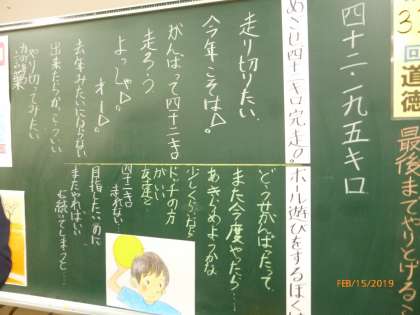 3
回
道徳
最後までやりとげる
四十二・一九五キロ
めざし四十二キロ完走。
ボール遊びをするぼく
走り切りたい。
今年こそは。
がんばって四十二キロ
走ろう
よっしゃ。
オー。
去年みたいにはならない
出来たらかっこいい
やり切ってみたい
どうせがんばったって、
また今度やったら…
あきらめようかな
少しくらいなら
ドッチの方
がいい
友達と
四十二キロ
走れない
目指したいのに
またやればいい
FEB/15/2019